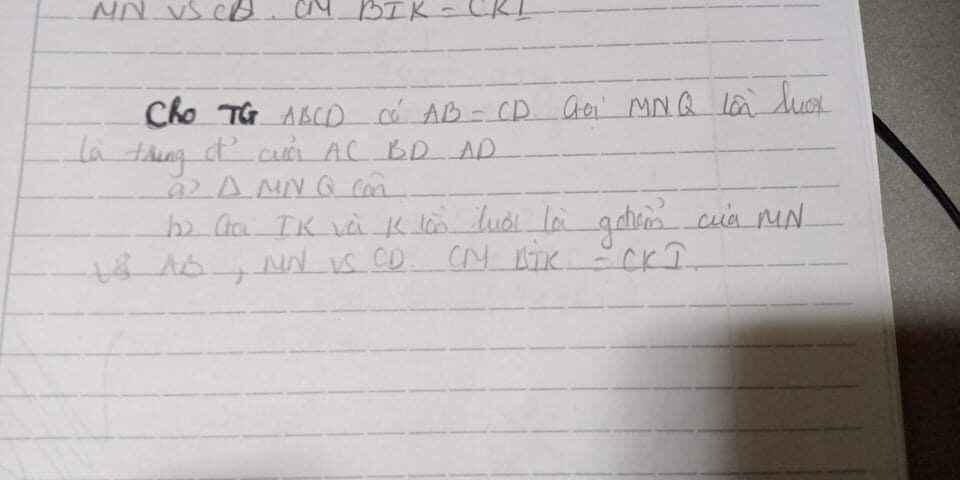 MN VS CD. CM BIK = CKI
Cho TG ABCD có AB = CD Gọi MNQ lần lượt
là trung đ' của AC BD AD
a) Δ MNQ cân
b) Gọi IK và K lần lượt là gđiểm của MN
với AB, MN VS CD. CM BIK = CKI.